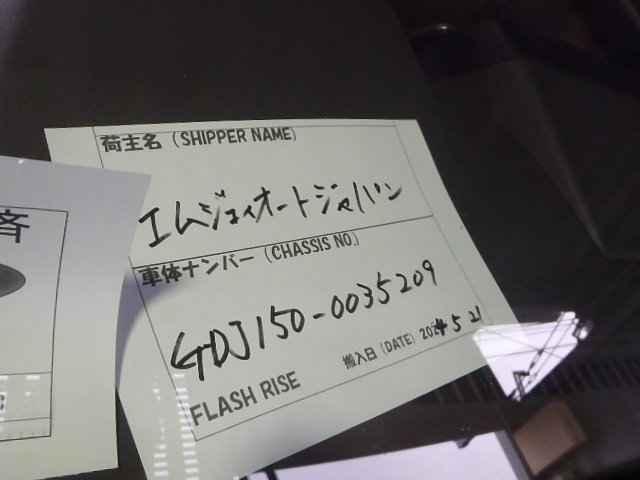 荷主名（SHIPPER NAME）
エムジェイオートジャパン
車体ナンバー（CHASSIS NO.）
GDJ150-0035209
搬入日（DATE）2024 5 21
FLASH RISE
済